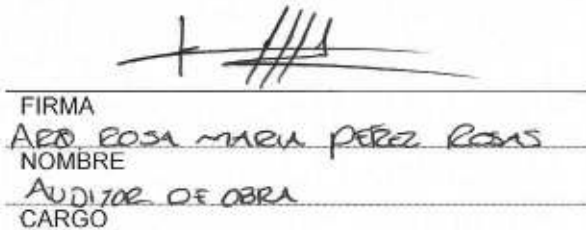 FIRMA
ARQ. ROSA MARIA PEREZ ROSAS
NOMBRE
AUDITOR DE OBRA
CARGO